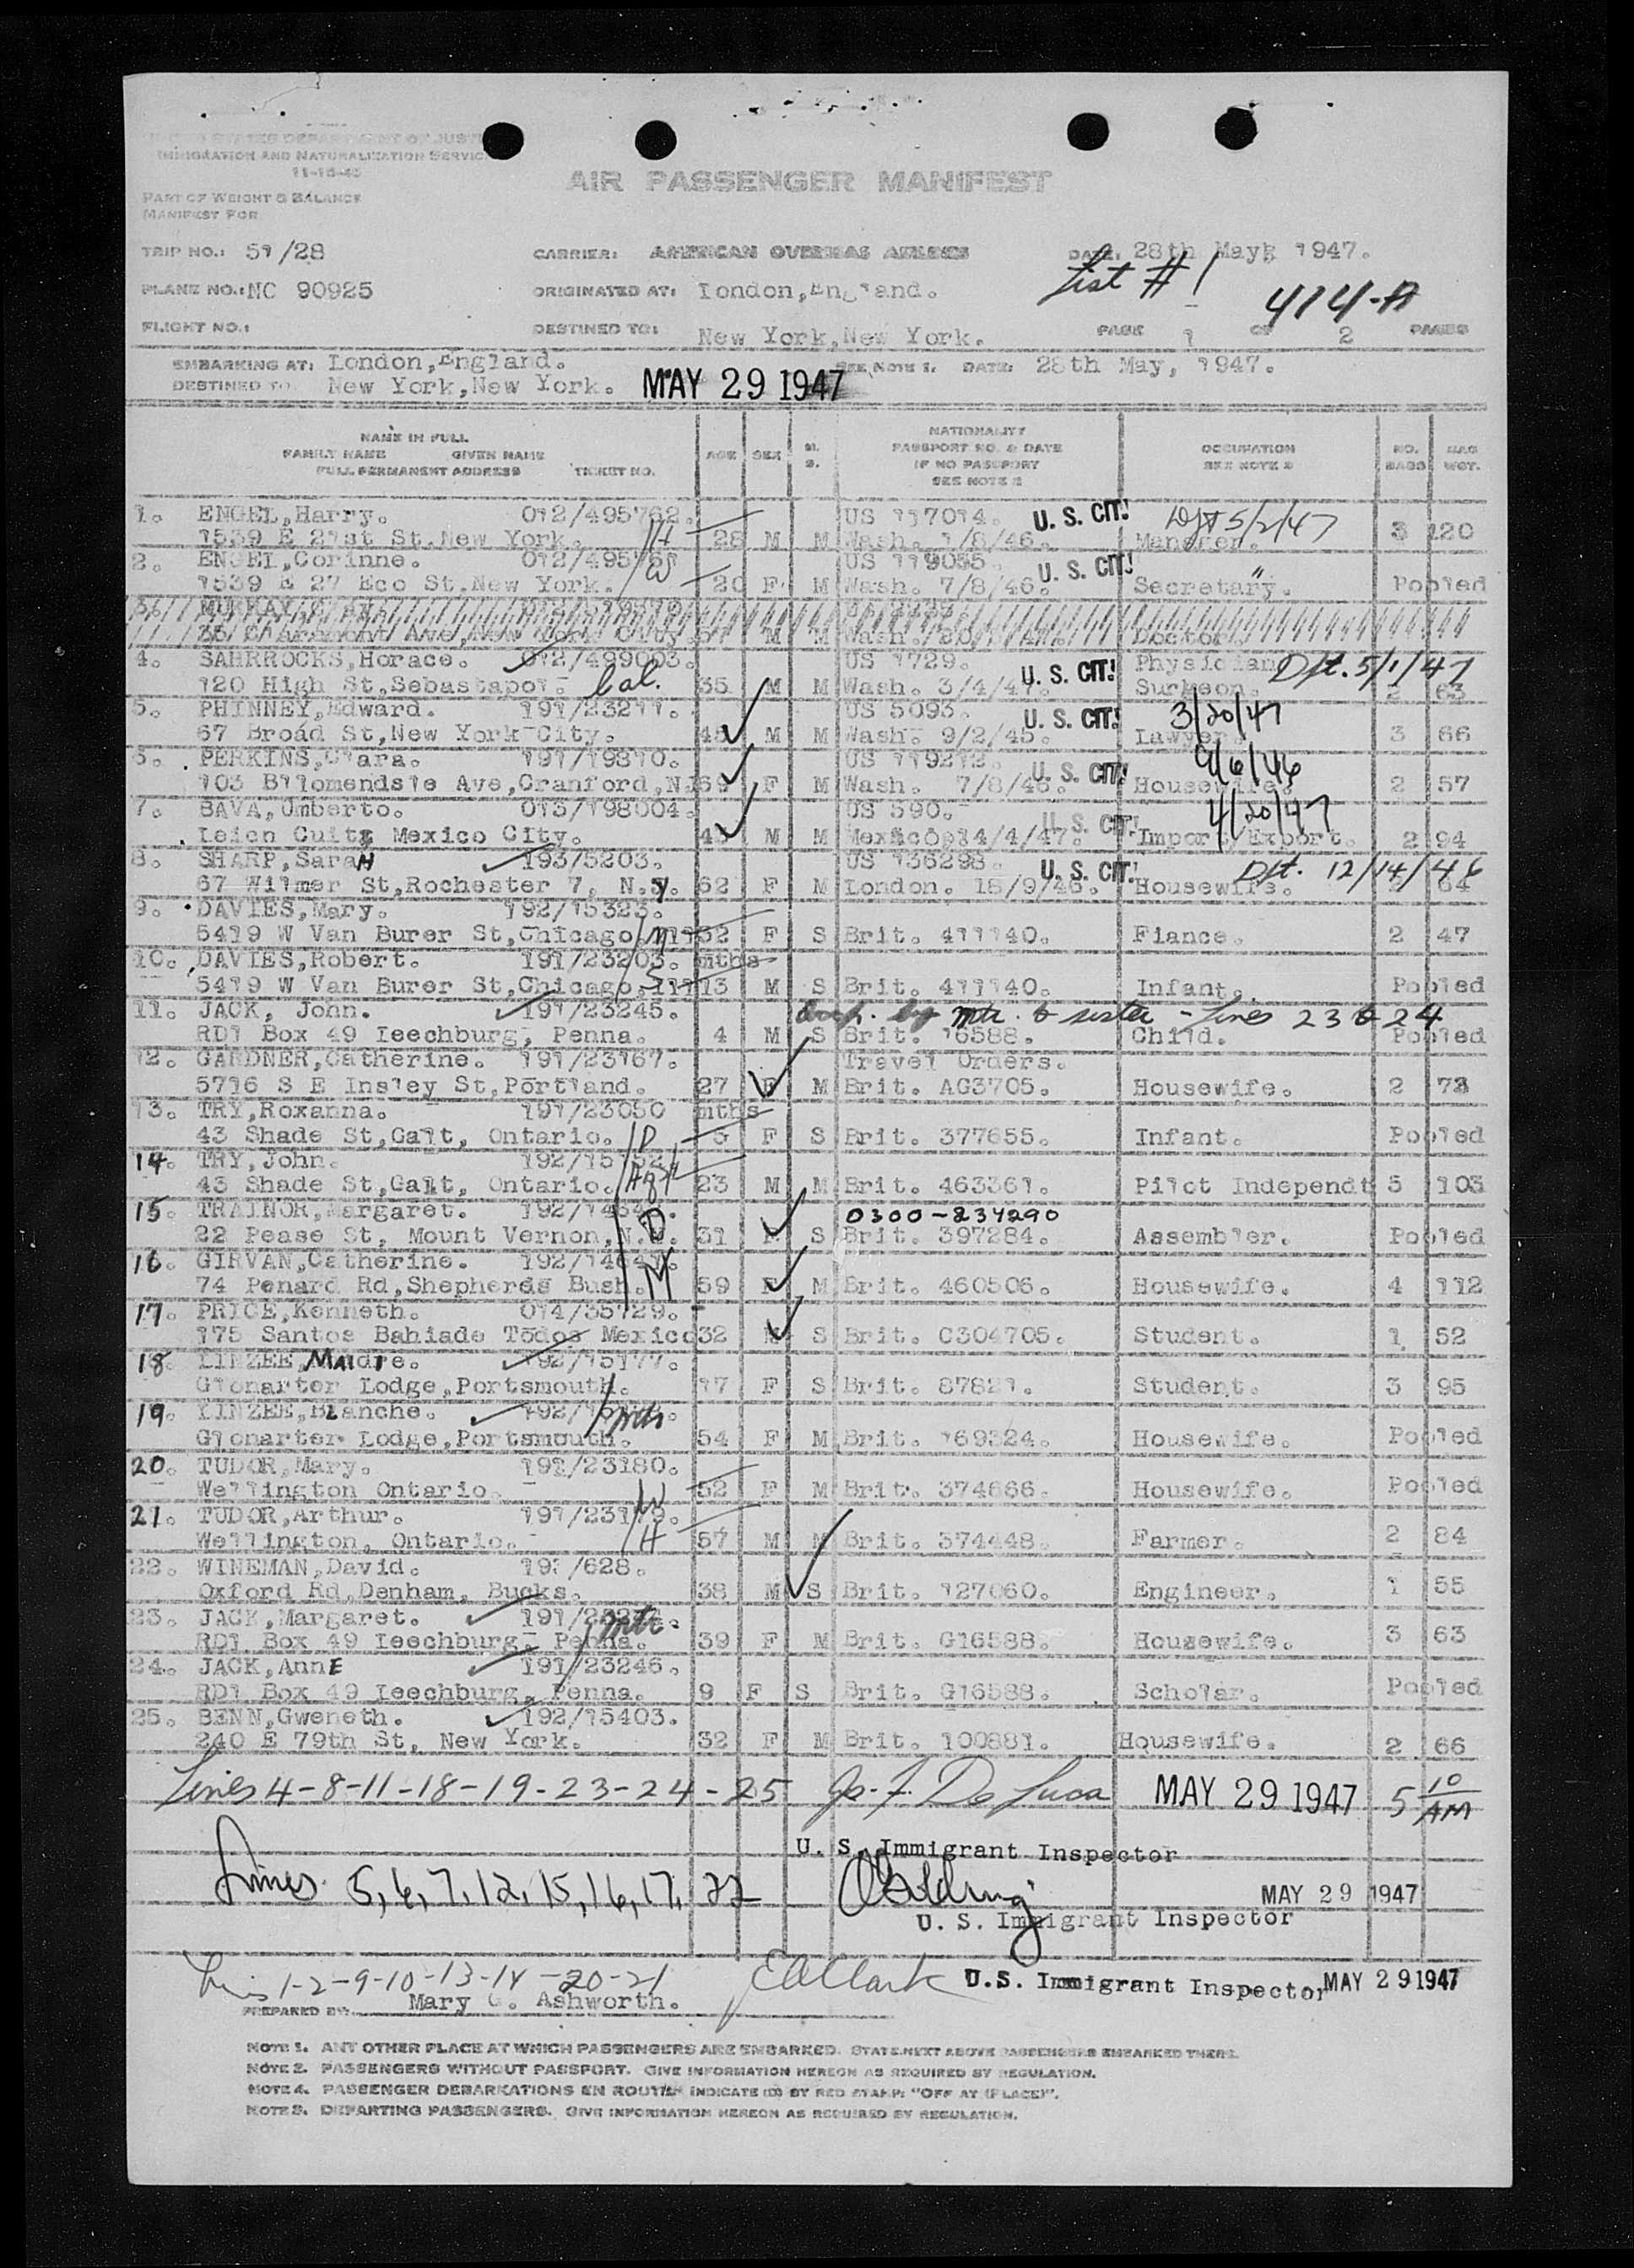 UNITED STATES DEPARTMENT OF JUST
IMMIGRATION AND NATURALIZATION SERVIC
11-15-45
AIR PASSENGER MANIFEST
PART OF WEIGHT & BALANCE
MANIFEST FOR
TRIP NO.: 51/28 CARRIER: AMERICAN OVERSEAS AIRLINES DATE. 28th May 1947.
List # 1
PLANE NO.: NC 90925 ORIGINATED AT: London, England. 414-A
FLIGHT NO.: DESTINED TO: New York, New York. PAGE 1 OF 2 PAGES
EMBARKING AT: London, England. SEE NOTE 1. DATE: 28th May, 1947.
DESTINED TO New York, New York. MAY 29 1947
NAME IN FULL
FAMILY NAME GIVEN NAME
FULL PERMANENT ADDRESS TICKET NO. AGE SEX M. S. NATIONALITY PASSPORT NO. & DATE IF NO PASSPORT SEE NOTE 2 OCCUPATION SEE NOTE 2 NO. BAGS BAG WGT.
1. ENGEL, Harry. 012/495762. US 117014. U. S. CIT! Dft 5/2/47
1539 E 21st St, New York. H 28 M M Wash. 1/8/46. Manager. 3 120
2. ENGEL, Corinne. US 119055. U. S. CIT! "
1539 E 27 Eco St, New York. W 20 F M Wash. 7/8/46. Secretary. Pooled
3. MURRAY
Ave, New York City M M Wash. Doctor
4. SAHRROCKS, Horace. 012/499003. US 1729. U. S. CIT! Physician Dft. 5/1/47
120 High St, Sebastapol. Cal. 35 M M Wash. 3/4/47. Surgeon. 2 63
5. PHINNEY, Edward. 191/23211. US 5093. U. S. CIT! 3/20/47
67 Broad St, New York City. M M Wash. 9/2/45. Lawyer. 3 66
6. PERKINS, Clara. 191/19810. US 119212. U. S. CIT! 9/6/46
103 Bllomendsle Ave, Cranford, NJ 69 F M Wash. 7/8/46. Housewife. 2 57
7. BAVA, Umberto. 013/198004. US 590. U. S. CIT! 4/20/47
Leion Cuits Mexico City. M M Mexico 14/4/47. Import Export. 2 94
8. SHARP, SaraH 193/5203. US 136298. U. S. CIT! Dft. 12/14/46
67 Wilmer St, Rochester 7, N.Y. 62 F M London. 18/9/46. Housewife. 64
9. DAVIES, Mary. 192/15323.
5419 W Van Burer St, Chicago, M 32 F S Brit. 411140. Fiance. 2 47
10. DAVIES, Robert. 191/23203. mths
5419 W Van Burer St, Chicago, S 13 M S Brit. 411140. Infant. Pooled
11. JACK, John. 191/23245. by mtr. & sister - Lines 23 & 24
RD1 Box 49 Leechburg, Penna. 4 M S Brit. 16588. Child. Pooled
12. GARDNER, Catherine. 191/23167. Travel Orders.
5716 S E Insley St, Portland. 27 F M Brit. AG3705. Housewife. 2 73
13. TRY, Roxanna. 191/23050 mths
43 Shade St, Galt, Ontario. D 5 F S Brit. 377655. Infant. Pooled
14. TRY, John.
43 Shade St, Galt, Ontario. 23 M M Brit. 463361. Pilot Independt 5 103
15. TRAINOR, Margaret. 0300-234290
22 Pease St, Mount Vernon, N.Y. D 31 S Brit. 397284. Assembler. Pooled
16. GIRVAN, Catherine.
74 Penard Rd, Shepherds Bush. M 59 F M Brit. 460506. Housewife. 4 112
17. PRICE, Kenneth. 014/35729.
175 Santos Bahiade Todos Mexico 32 S Brit. C304705. Student. 1 52
18. LINZEE, MAIDIe. 192/15177.
Glonarter Lodge, Portsmouth. 17 F S Brit. 87821. Student. 3 95
19. LINZEE, Blanche. mtr.
Glonarter Lodge, Portsmouth. 54 F M Brit. 169324. Housewife. Pooled
20. TUDOR, Mary. 191/23180.
Wellington Ontario. W 52 F M Brit. 374666. Housewife. Pooled
21. TUDOR, Arthur. 191/23179.
Wellington, Ontario. H 57 M M Brit. 374448. Farmer. 2 84
22. WINEMAN, David. 191/628.
Oxford Rd, Denham, Bucks. 38 M S Brit. 127060. Engineer. 1 55
23. JACK, Margaret. mtr.
RD1 Box 49 Leechburg, Penna. 39 F M Brit. G16588. Housewife. 3 63
24. JACK, AnnE 191/23246.
RD1 Box 49 Leechburg, Penna. 9 F S Brit. G16588. Scholar. Pooled
25. BENN, Gweneth. 192/15403.
240 E 79th St, New York. 32 F M Brit. 100881. Housewife. 2 66
Lines 4-8-11-18-19-23-24-25 Jo. F. De Luca MAY 29 1947 5 10 AM
U. S. Immigrant Inspector
Lines 5, 6, 7, 12, 15, 16, 17, 22 MAY 29 1947
U. S. Immigrant Inspector
Lines 1-2-9-10-13-14-20-21 E A Clark U.S. Immigrant Inspector MAY 29 1947
PREPARED BY: Mary G. Ashworth.
NOTE 1. ANY OTHER PLACE AT WHICH PASSENGERS ARE EMBARKED. STATE NEXT ABOVE PASSENGERS EMBARKED THERE.
NOTE 2. PASSENGERS WITHOUT PASSPORT. GIVE INFORMATION HEREON AS REQUIRED BY REGULATION.
NOTE 4. PASSENGER DEBARKATIONS EN ROUTE INDICATE (D) BY RED STAMP: "OFF AT (PLACE)".
NOTE 3. DEPARTING PASSENGERS. GIVE INFORMATION HEREON AS REQUIRED BY REGULATION.